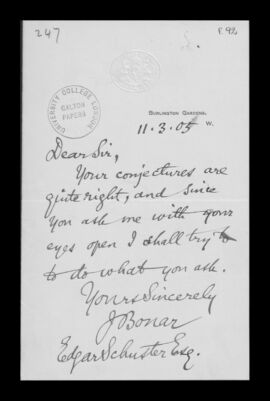 247
F.92
UNIVERSITY COLLEGE LONDON
GALTON
PAPERS
BURLINGTON GARDENS,
W.
11.3.05
Dear Sir,
Your conjectures are
quite right; and since
you ask me with your
eyes open I shall try to
to do what you ask.
Yours Sincerely
J Bonar
Edgar Schuster Esq.